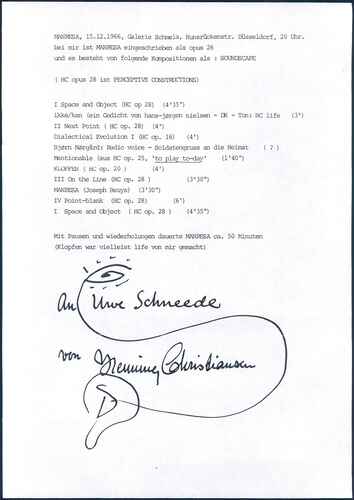 MANRESA, 15.12.1966, Galerie Schmela, Hunsrückenstr. Düsseldorf, 20 Uhr.
bei mir ist MANRESA eingeschrieben als opus 28
und es besteht von folgende Kompositionen als : SOUNDSCAPE
( HC opus 28 ist PERCEPTIVE CONSTRUCTIONS)
I Space and Object (HC op 28) (4'35")
ikke/ken (ein Gedicht von hans-jørgen nielsen - DK - Ton: HC life (3')
II Next Point ( HC op. 28) (4')
Dialectical Evolution I (HC op. 16) (4')
Bjørn Nørgård: Radio voice - Soldatengruss an die Heimat ( ? )
Mentionable (aus HC op. 25, 'to play to-day' (1'40")
KLOPFEN ( HC op. 20 ) (4')
III On the Line (HC op. 28 ) (3'30")
MANRESA (Joseph Beuys) (3'30")
IV Point-blank (HC op. 28) (6')
I Space and Object ( HC op. 28 ) (4'35")
Mit Pausen und wiederholungen dauerte MANRESA ca. 50 Minuten
(Klopfen war vielleist life von mir gemacht)
An Uwe Schneede
von Henning Christiansen